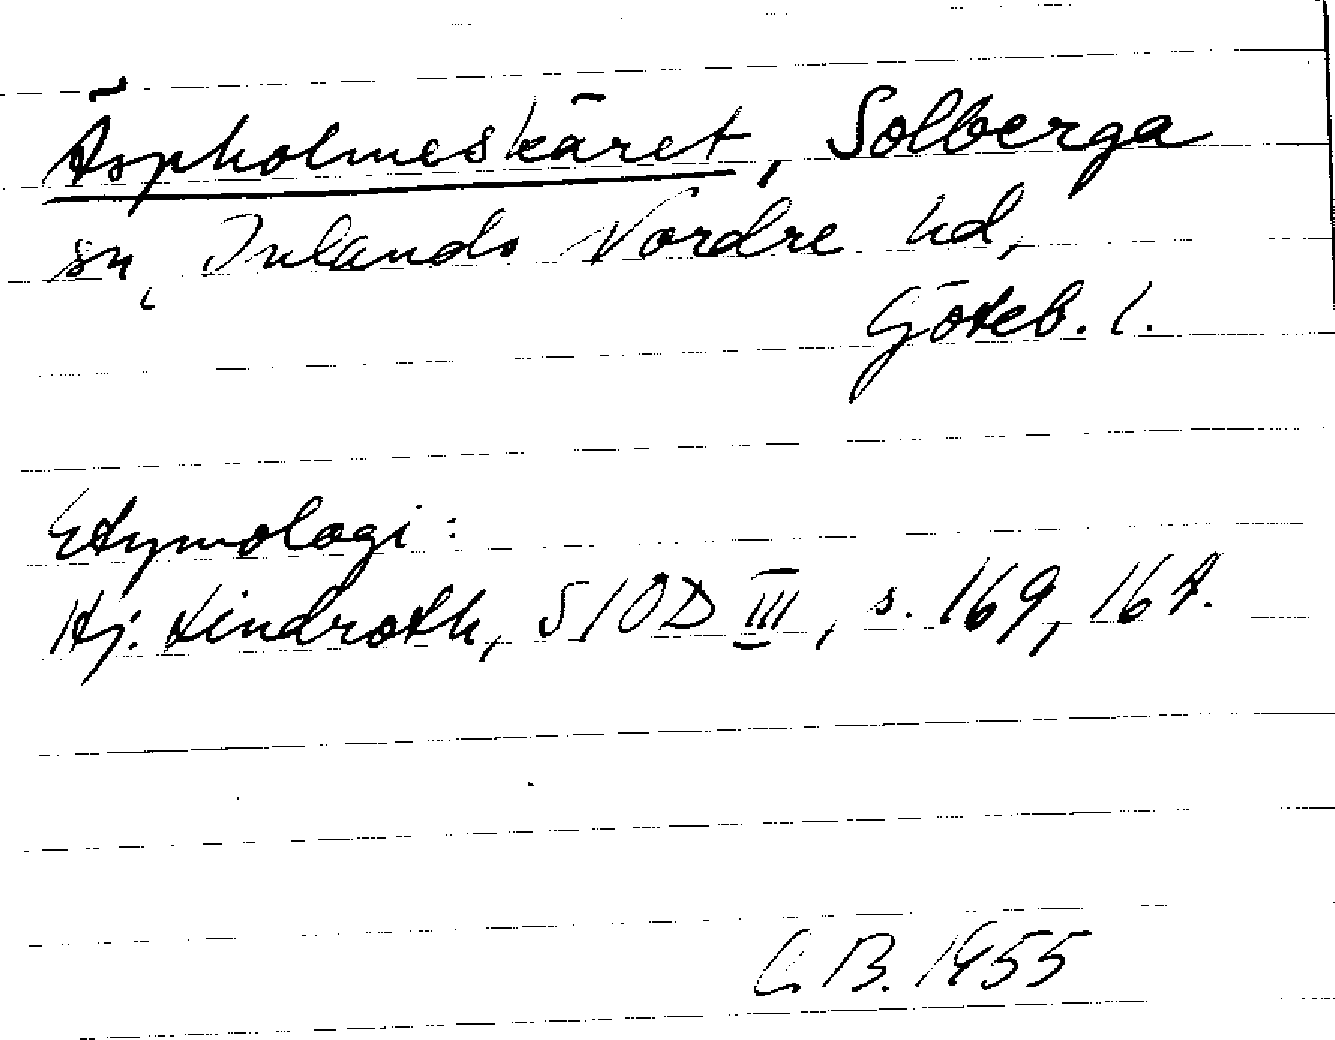 Äspholmeskäret, Solberga
sn, Inlands Nordre hd,
Göteb. l.
Etymologi:
Hj. Lindroth, SIOD III, s. 169, 167.
C B. 1955